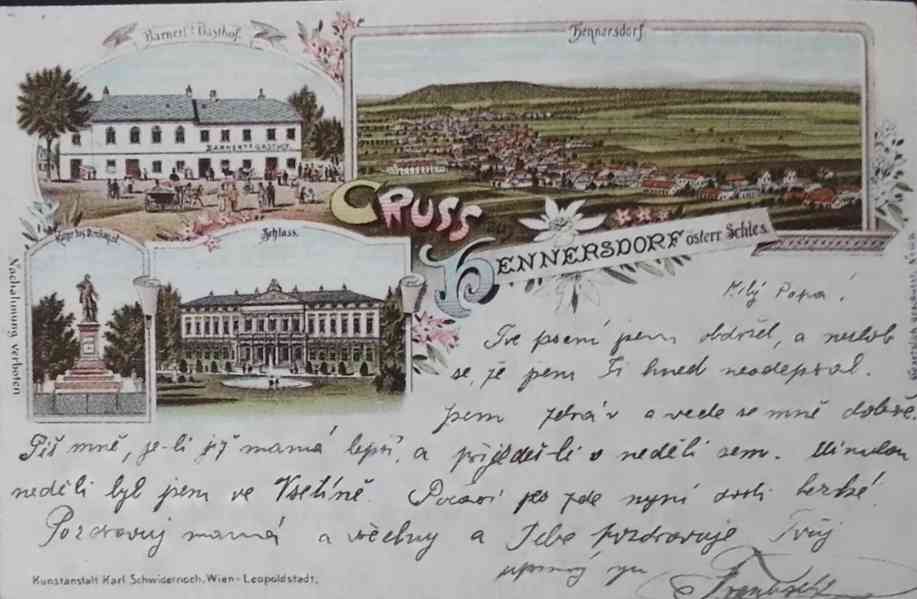 Barnert's Gasthof.
Hennersdorf.
BARNERT'S GASTHOF
GRUSS
aus
HENNERSDORF österr. Schles.
Schloss.
Nachahmung verboten
Milý Papa!
Tvé psaní jsem obdržel, a nezlob
se, že jsem Ti hned neodepsal.
Jsem zdráv a vede se mně dobře.
Piš mně, je-li již mamá lepší, a přijedeš-li v neděli sem. Minulou
neděli byl jsem ve Vsetíně. Počasí je zde nyní dosti hezké!
Pozdravuj mamá a všechny a Tebe pozdravuje Tvůj
upřímný syn
František
Kunstanstalt Karl Schwidernoch, Wien-Leopoldstadt.